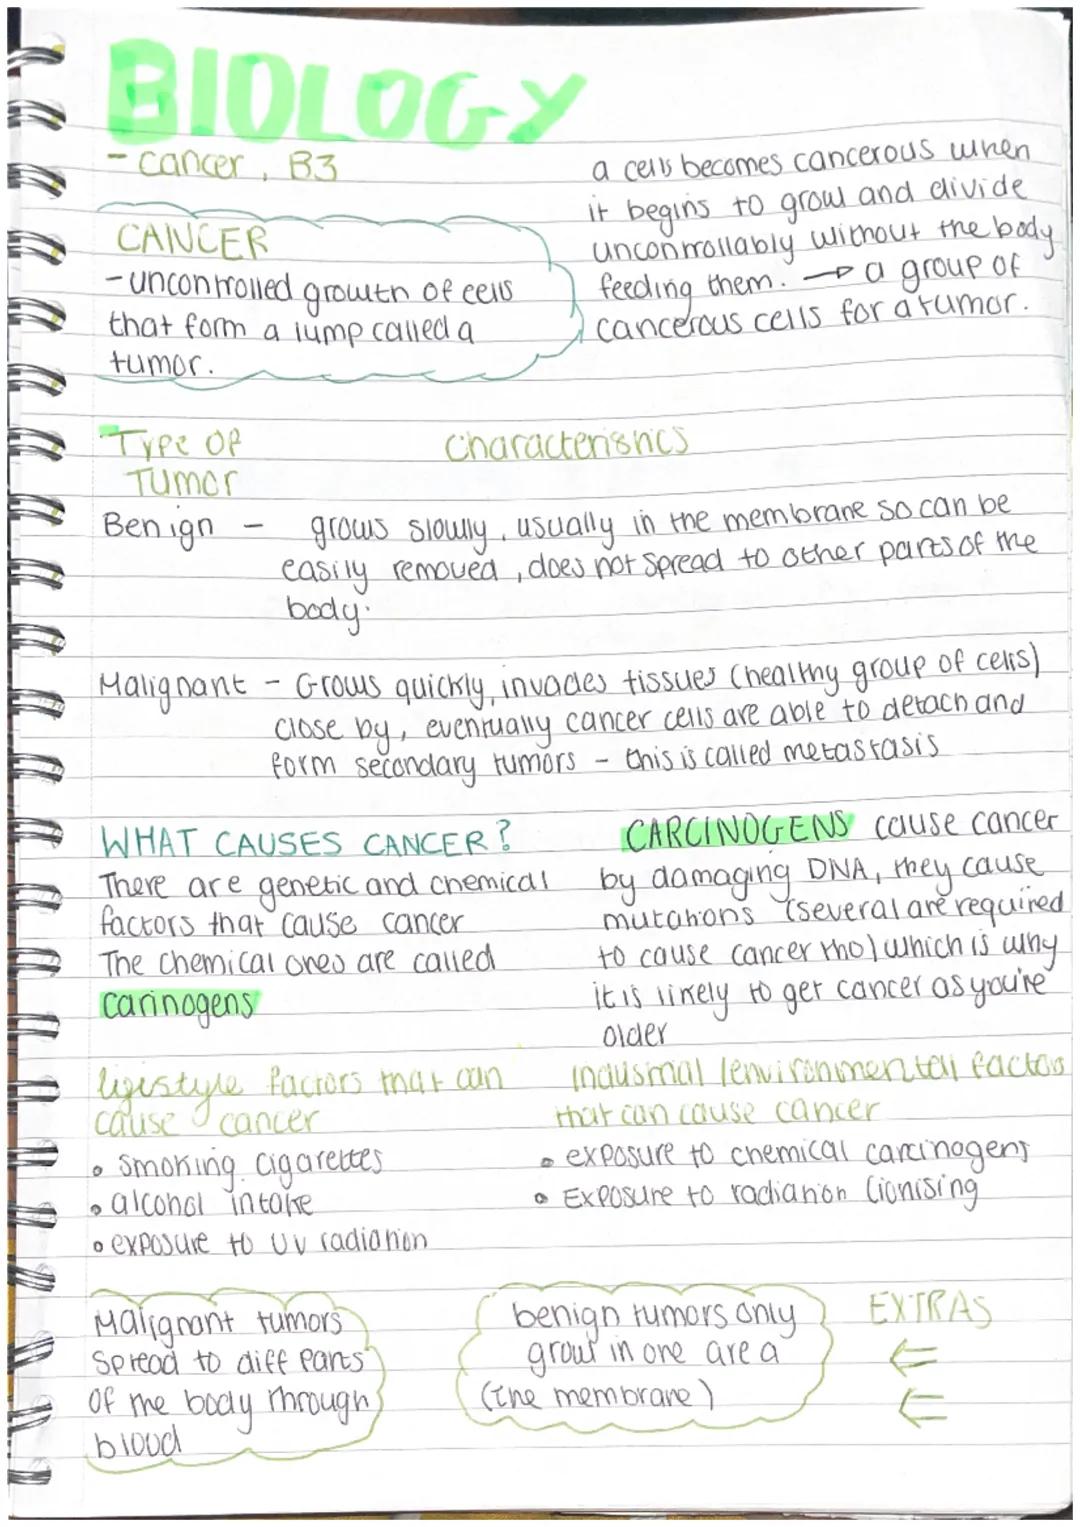 BIOLOGY
- cancer, B3
CANCER
- uncontrolled growth of cells
that form a lump called a
tumor.
a cells becomes cancerous when
it begins to grow and divide
uncontrollably without the body
feeding them. → a group of
cancerous cells for a tumor.
Type of
Tumor
Characteristics
Benign - grows slowly, usually in the membrane so can be
easily removed, does not spread to other parts of the
body.
Malignant - Grows quickly, invades tissues (healthy group of cells)
close by, eventually cancer cells are able to detach and
form secondary tumors - this is called metastasis
WHAT CAUSES CANCER?
There are genetic and chemical
factors that cause cancer
The chemical ones are called
carinogens
CARCINOGENS cause cancer
by damaging DNA, they cause
mutations (several are required
to cause cancer tho) which is why
it is likely to get cancer as you're
older
lifestyle factors that can
cause cancer
• smoking cigarettes
• alcohol intake
• exposure to UV radiation
industrial/environmental factors
that can cause cancer
• exposure to chemical carcinogens
• Exposure to radiation (ionising
Malignant tumors
Spread to diff parts
of the body through
blood
benign tumors only
grow in one area
(the membrane)
EXTRAS
⇐
⇐